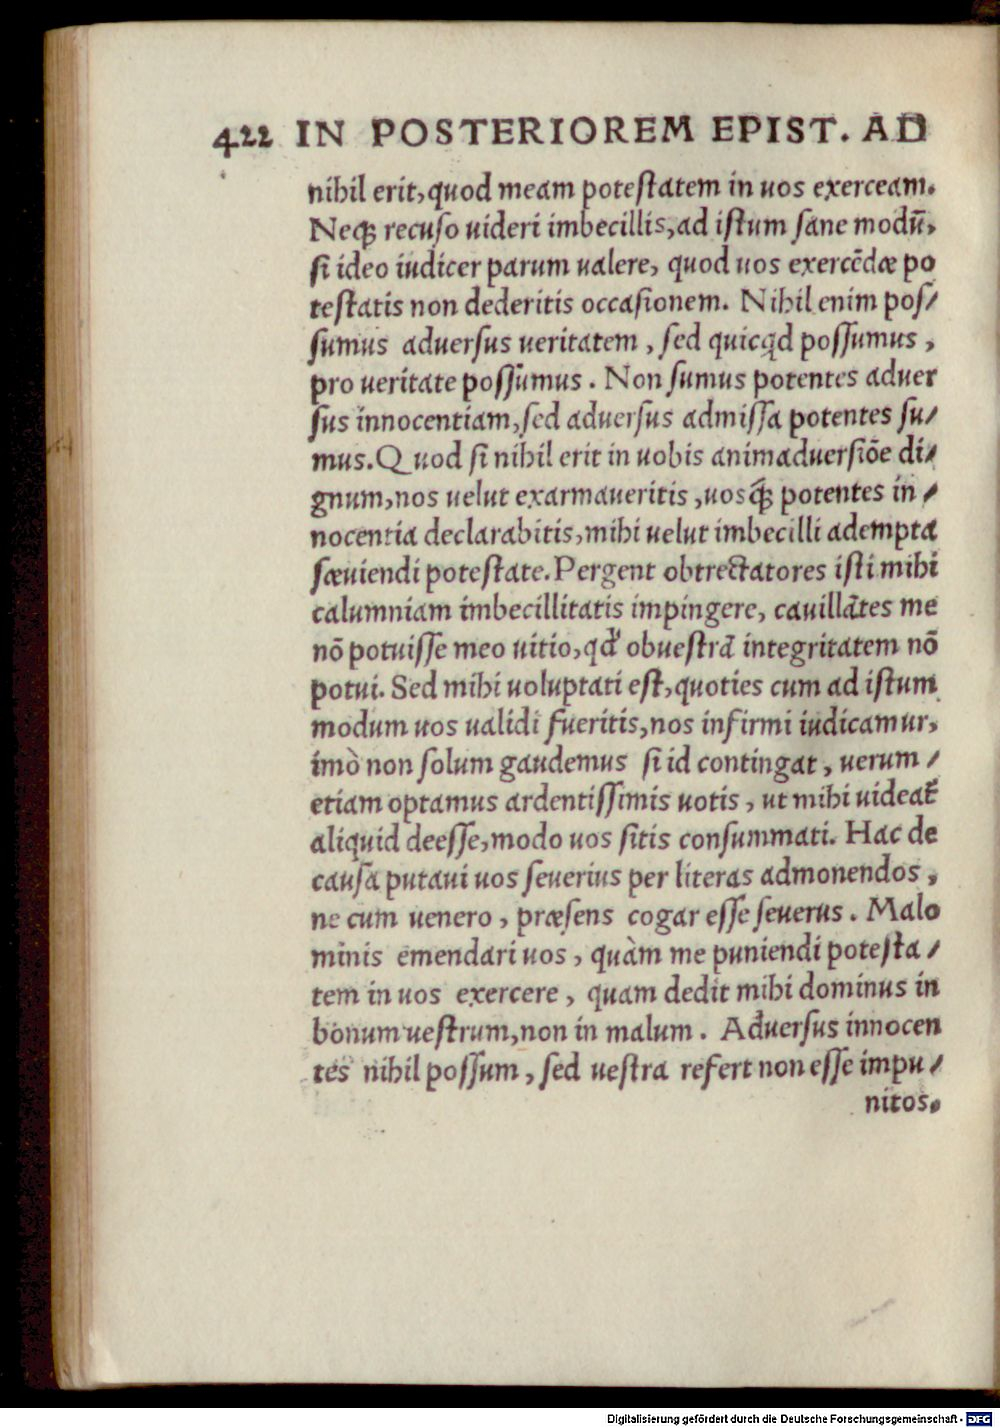 422 IN POSTERIOREM EPIST. AD
nihil erit, quod meam poteſtatem in uos exerceam.
Neqꝫ recuſo uideri imbecillis, ad iſtum ſane modū,
ſi ideo iudicer parum ualere, quod uos exercēdæ po
teſtatis non dederitis occaſionem. Nihil enim poſ/
ſumus aduerſus ueritatem, ſed quicqd poſſumus,
pro ueritate poſſumus. Non ſumus potentes aduer
ſus innocentiam, ſed aduerſus admiſſa potentes ſu/
mus. Quod ſi nihil erit in uobis animaduerſiōe di/
gnum, nos uelut exarmaueritis, uosqꝫ potentes in/
nocentia declarabitis, mihi uelut imbecilli adempta
ſæuiendi poteſtate. Pergent obtrectatores iſti mihi
calumniam imbecillitatis impingere, cauillātes me
nō potuiſſe meo uitio, qd' ob ueſtrā integritatem nō
potui. Sed mihi uoluptati eſt, quoties cum ad iſtum
modum uos ualidi fueritis, nos infirmi iudicamur,
imò non ſolum gaudemus ſi id contingat, uerum/
etiam optamus ardentiſſimis uotis, ut mihi uideat᷑
aliquid deeſſe, modo uos ſitis conſummati. Hac de
cauſa putaui uos ſeuerius per literas admonendos,
ne cum uenero, præſens cogar eſſe ſeuerus. Malo
minis emendari uos, quàm me puniendi poteſta/
tem in uos exercere, quam dedit mihi dominus in
bonum ueſtrum, non in malum. Aduerſus innocen
tes nihil poſſum, ſed ueſtra refert non eſſe impu/
nitos.
Digitalisierung gefördert durch die Deutsche Forschungsgemeinschaft - DFG